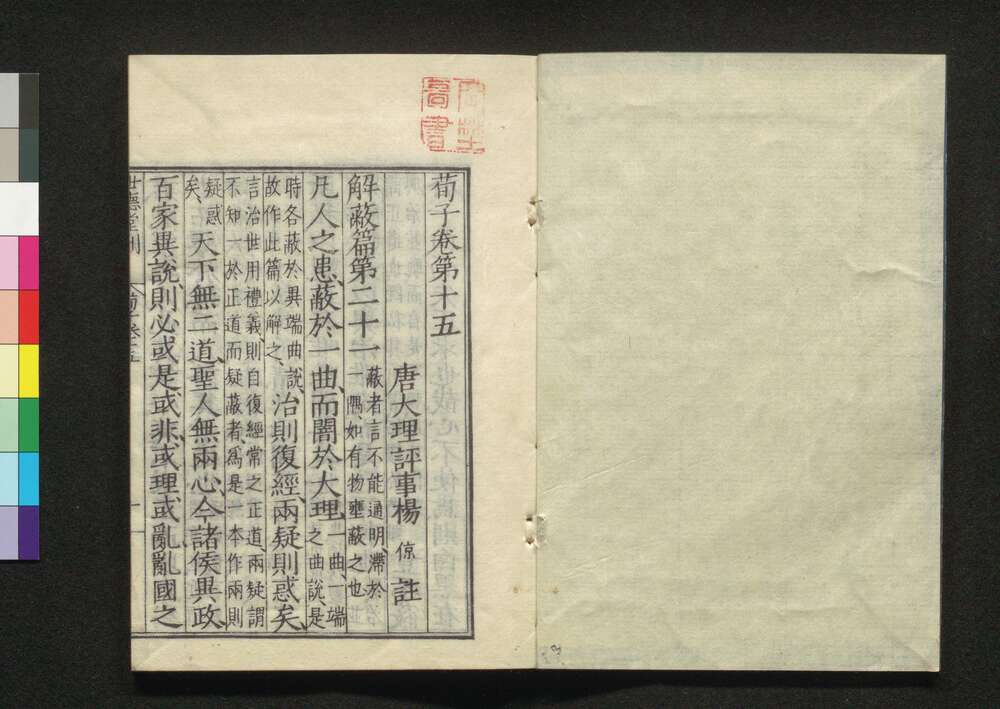 荀子卷第十五
唐大理評事楊倞註
解蔽篇第二十一
蔽者言不能通明、滯於
一隅、如有物壅蔽之也
凡人之患、蔽於一曲、而闇於大理、
一曲、一端
之曲說是
時各蔽於異端曲說、
故作此篇以解之、
治則復經、兩疑則惑矣、
言治世用禮義、則自復經常之正道、兩疑謂
不知一於正道而疑蔽者、爲是一本作兩則
疑惑
矣、
天下無二道、聖人無兩心、今諸侯異政、
百家異說、則必或是或非、或理或亂、亂國之
世德堂刊